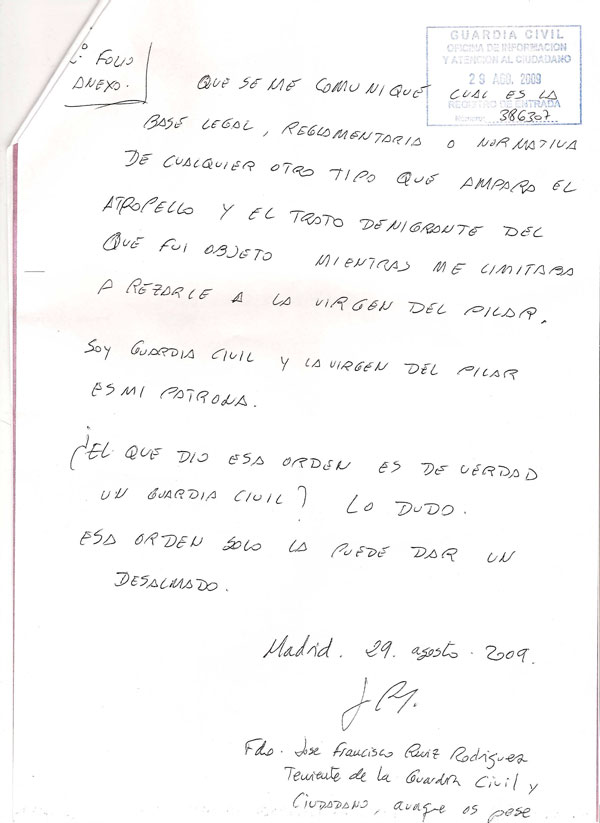 GUARDIA CIVIL
OFICINA DE INFORMACION
Y ATENCION AL CIUDADANO
29 AGO. 2009
REGISTRO DE ENTRADA
386307
FOLIO
ANEXO.
QUE SE ME COMUNIQUE CUAL ES LA
BASE LEGAL, REGLAMENTARIA O NORMATIVA
DE CUALQUIER OTRO TIPO QUE AMPARA EL
ATROPELLO Y EL TRATO DENIGRANTE DEL
QUE FUI OBJETO MIENTRAS ME LIMITABA
A REZARLE A LA VIRGEN DEL PILAR.
SOY GUARDIA CIVIL Y LA VIRGEN DEL PILAR
ES MI PATRONA.
¿EL QUE DIO ESA ORDEN ES DE VERDAD
UN GUARDIA CIVIL? LO DUDO.
ESA ORDEN SOLO LA PUEDE DAR UN
DESALMADO.
Madrid. 29. agosto. 2009.
Fdo. Jose Francisco Ruiz Rodriguez
Teniente de la Guardia Civil y
CIUDADANO, aunque os pese